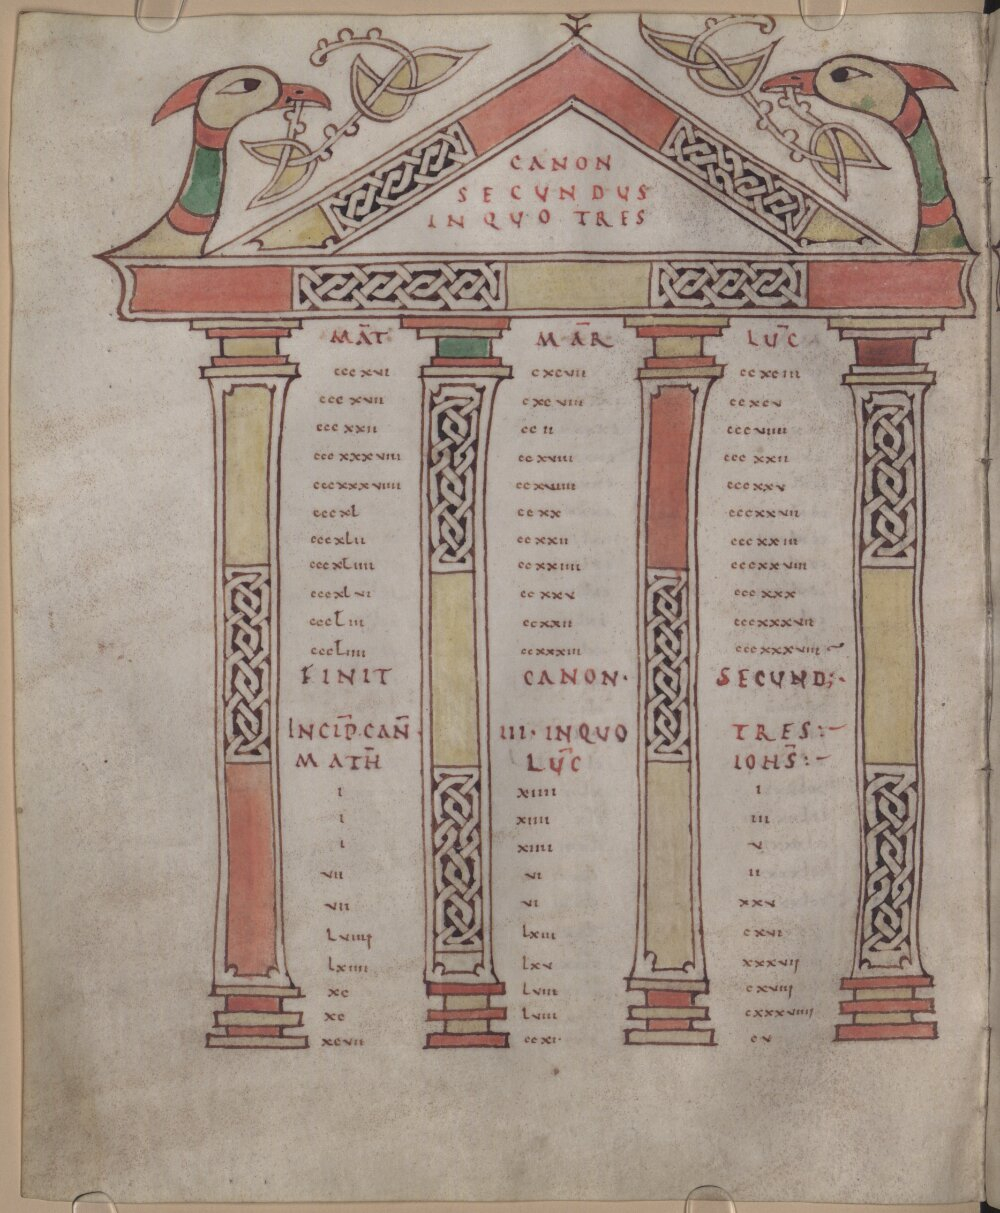 CANON
SECUNDUS
IN QUO TRES
MAT̄ MAR̄ LUC̄
cccxvi cxcvii ccxciii
cccxvii cxcviii ccxcv
cccxxii ccii cccviiii
cccxxxviii ccxviii cccxxii
cccxxxviiii ccxviiii cccxxv
cccxl ccxx cccxxvii
cccxlii ccxxii cccxxiii
cccxliiii ccxxiiii cccxxviii
cccxlvi ccxxv cccxxx
cccliii ccxxii cccxxxvii
cccliiii ccxxxiii cccxxxviii
FINIT CANON· SECUND;·
INCIP̄·CAN̄· III· IN QUO TRES:-
MATH̄ LUC̄ IOHS̄:-
i xiiii i
i xiiii iii
i xiiii v
vii vi ii
vii vi xxv
lviiii lxiii cxvi
lxiiii lxv xxxvii
xc lviii cxviiii
xc lviii cxxxviiii
xcvii ccxi· cv